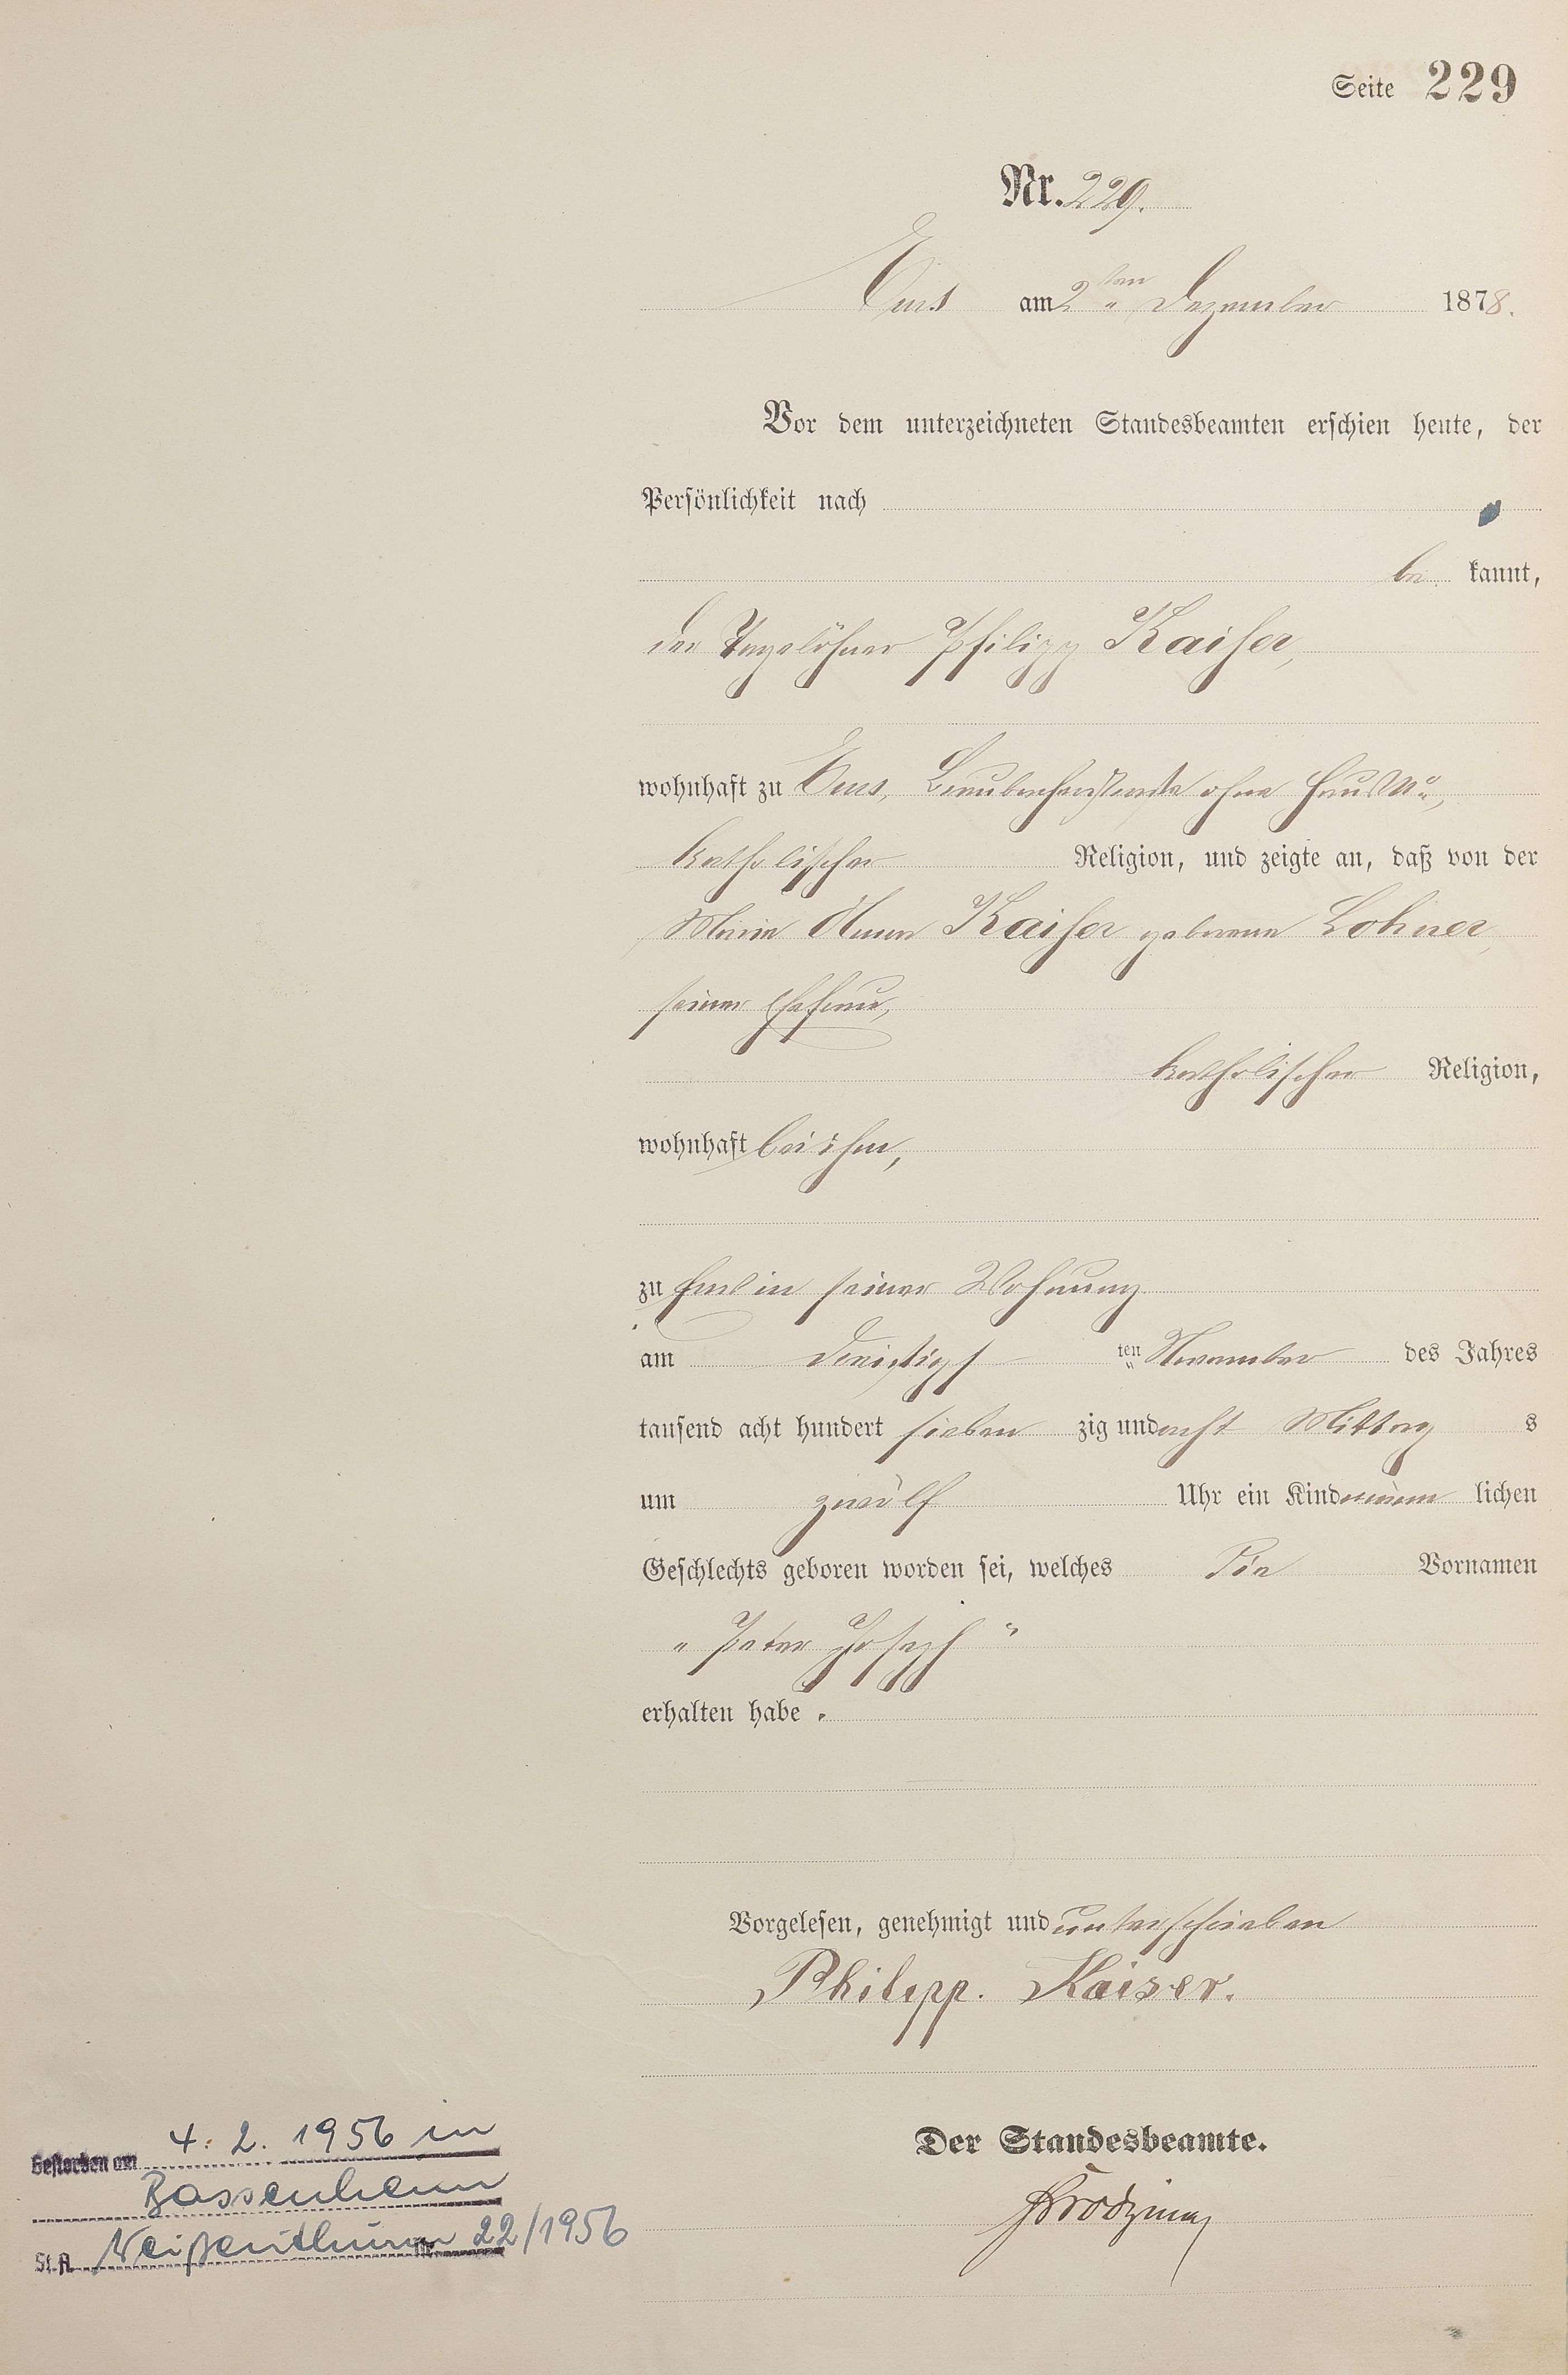 Seite 229
Nr. 229.
Ems am 2ten Dezember 1878.
Vor dem unterzeichneten Standesbeamten erschien heute, der
Persönlichkeit nach
be kannt,
der Tagelöhner Philipp Kaiser,
wohnhaft zu Ems, ohne Haus No,
katholischer Religion, und zeigte an, daß von der
Maria Anna Kaiser geborene Lohner,
seiner Ehefrau,
katholischer Religion,
wohnhaft bei ihm,
zu Ems in seiner Wohnung
am dreißigs ten November des Jahres
tausend acht hundert sieben zig und acht Mittag s
um zwölf Uhr ein Kind männ lichen
Geschlechts geboren worden sei, welches die Vornamen
" Peter Joseph "
erhalten habe.
Vorgelesen, genehmigt und unterschrieben
Philipp. Kaiser.
Der Standesbeamte.
Gestorben am 4. 2. 1956 in
Bassenheim
St.A. Weißenthurm Nr. 22/1956